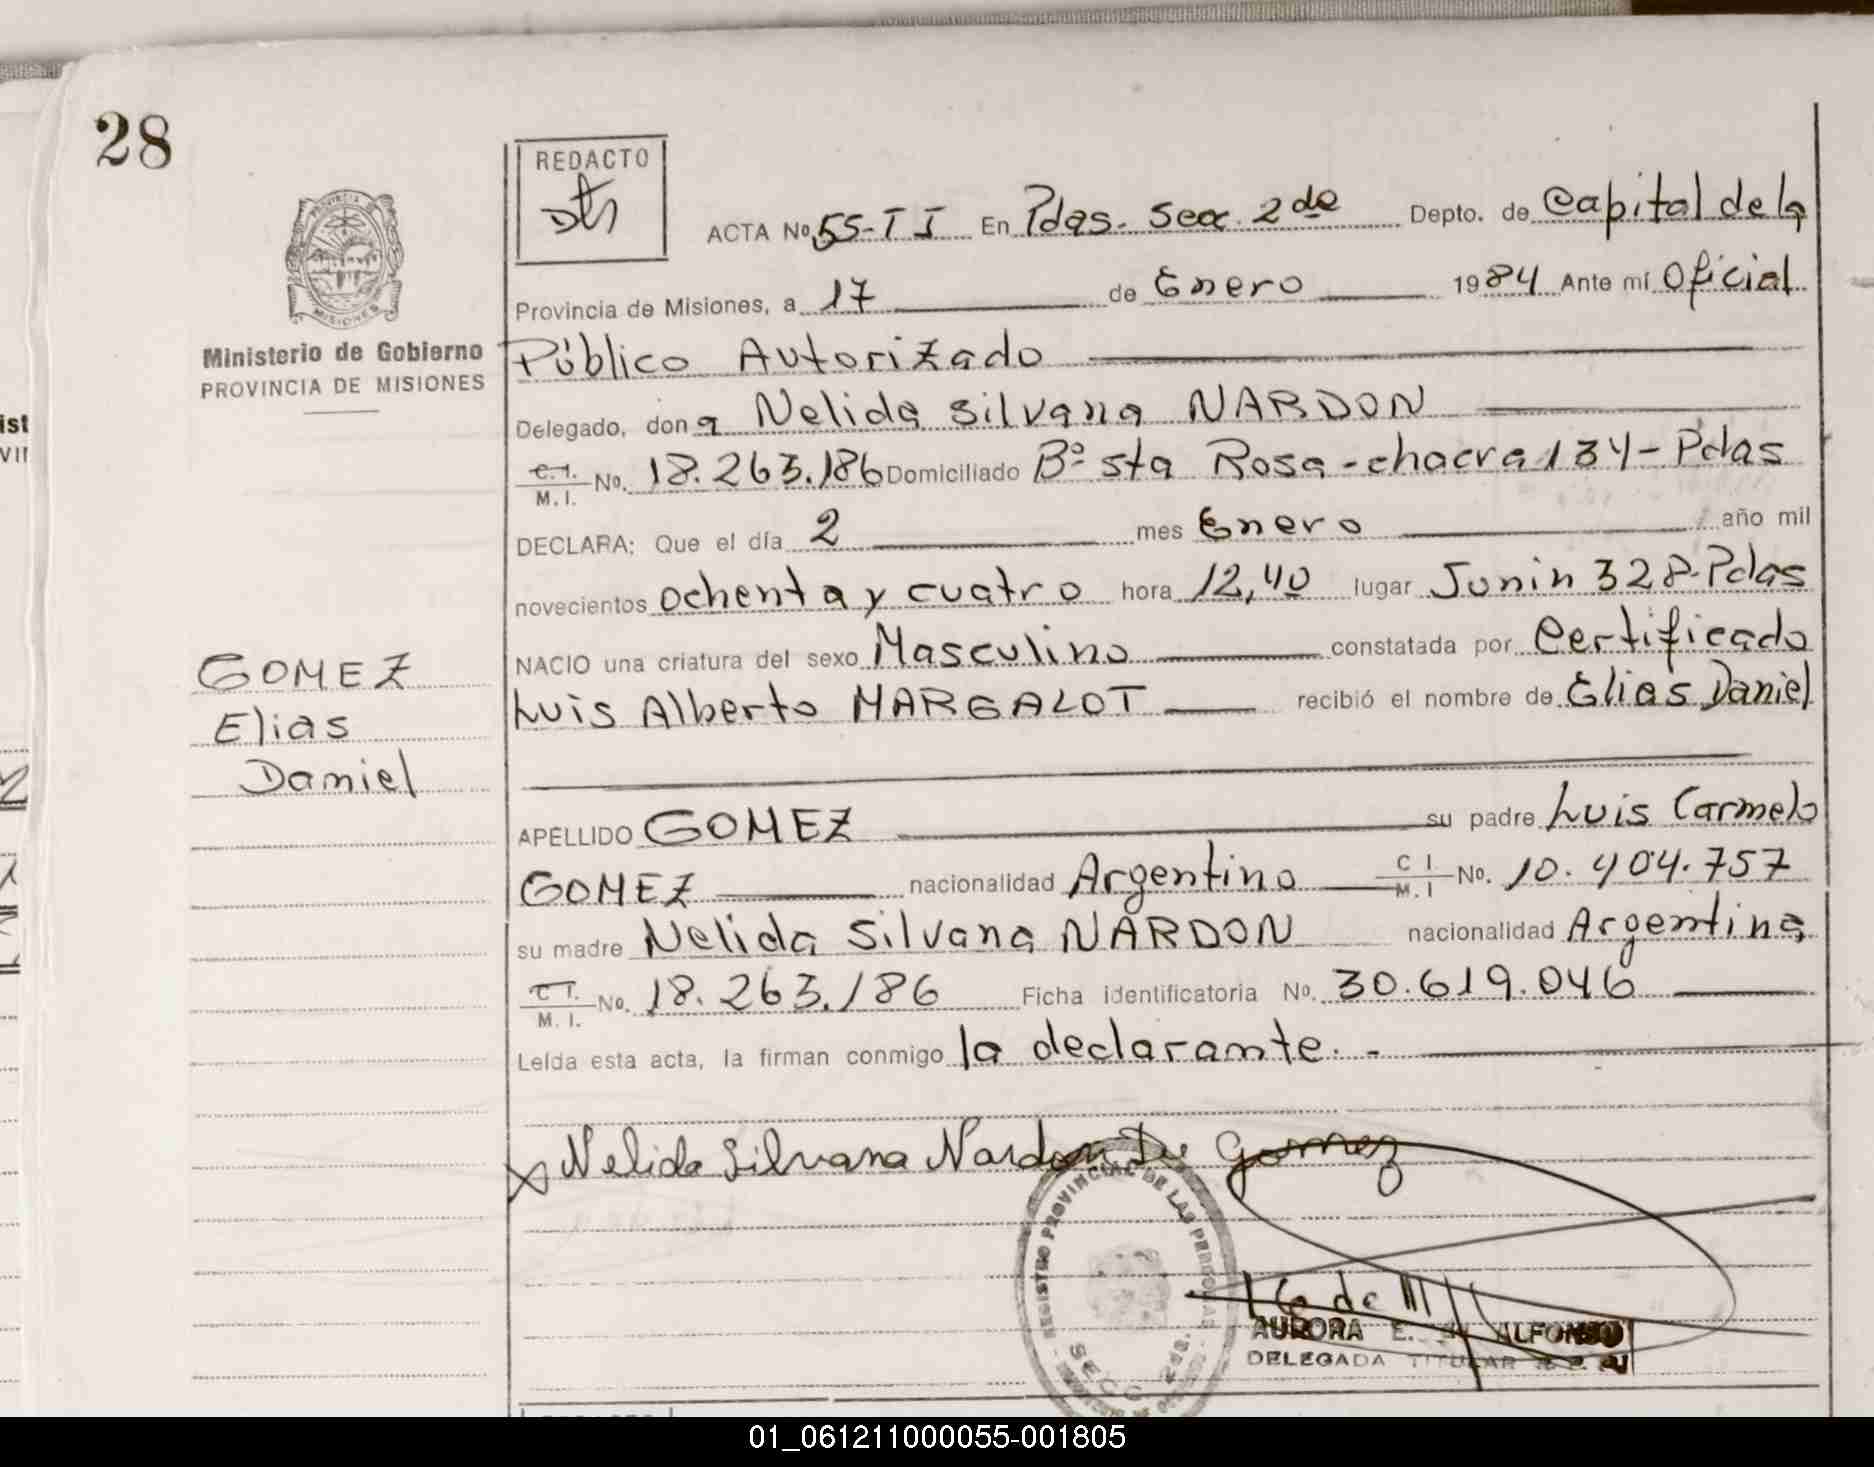 28
REDACTO
PROVINCIA
MISIONES
Ministerio de Gobierno
PROVINCIA DE MISIONES
ACTA No. 55-TI En Pdas. Secc. 2da Depto. de Capital de la
Provincia de Misiones, a 17 de Enero 1984 Ante mí Oficial
Público Autorizado
Delegado, don a Nelida Silvana NARDON
C.I. M.I. No. 18.263.186 Domiciliado Bº Sta Rosa - chacra 134 - Pdas
DECLARA: Que el día 2 mes Enero año mil
novecientos ochenta y cuatro hora 12,40 lugar Junin 328-Pdas
NACIO una criatura del sexo Masculino constatada por Certificado
Luis Alberto MARGALOT recibió el nombre de Elias Daniel
GOMEZ
Elias
Daniel
APELLIDO GOMEZ su padre Luis Carmelo
GOMEZ nacionalidad Argentino C I. M.I No. 10.404.757
su madre Nelida Silvana NARDON nacionalidad Argentina
C I. M. I. No. 18.263.186 Ficha identificatoria No. 30.619.046
Leída esta acta, la firman conmigo la declarante. -
Nelida Silvana Nardon De Gomez
REGISTRO PROVINCIAL DE LAS PERSONAS
SECC.
AURORA E. ALFONSO
DELEGADA TITULAR
ist
VII
01_061211000055-001805